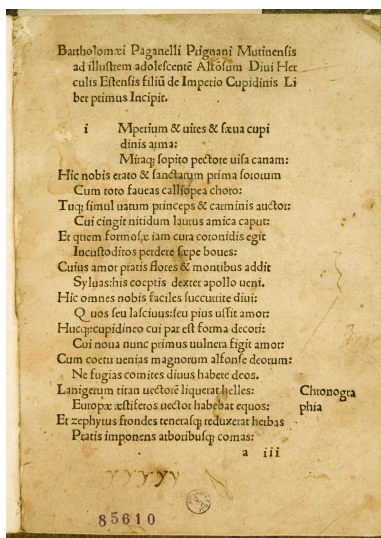 Bartholomæi Paganelli Prignani Mutinensis
ad illustrem adolescentē Alfōsum Diui Her
culis Estensis filiū de Imperio Cupidinis Li
ber primus Incipit.
i Mperium & uires & sæua cupi
dinis arma:
Miraq; sopito pectore uisa canam:
Hic nobis erato & sanctarum prima sororum
Cum toto faueas calliopea choro:
Tuq; simul uatum princeps & carminis auctor:
Cui cingit nitidum laurus amica caput:
Et quem formosæ iam cura coronidis egit
Incustoditos perdere sæpe boues:
Cuius amor pratis flores & montibus addit
Syluas: his coeptis dexter apollo ueni.
Hic omnes nobis faciles succurrite diui:
Quos seu lasciuus: seu pius ussit amor:
Hucq; cupidineo cui par est forma decori:
Cui noua nunc primus uulnera figit amor:
Cum coetu uenias magnorum alfonse deorum:
Ne fugias comites diuus habere deos.
Lanigerum titan uectorē liquerat helles:
Chronogra
Europæ æstiferos uector habebat equos:
phia
Et zephyrus frondes tenerasq; reduxerat herbas
Pratis imponens arboribusq; comas:
a iii
85610